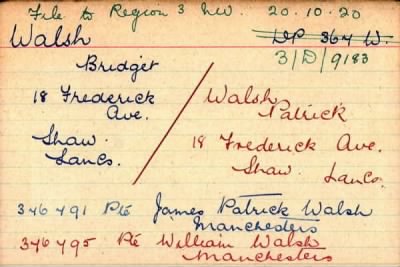 File to Region 3 NW. 20.10.20
Walsh
DP 364 W.
3/D/9183
Bridget
18 Frederick
Ave.
Shaw.
Lancs.
Walsh
Patrick
18 Frederick Ave.
Shaw.
Lancs.
346491 Pte James Patrick Walsh
Manchesters
346495 Pte William Walsh
Manchesters